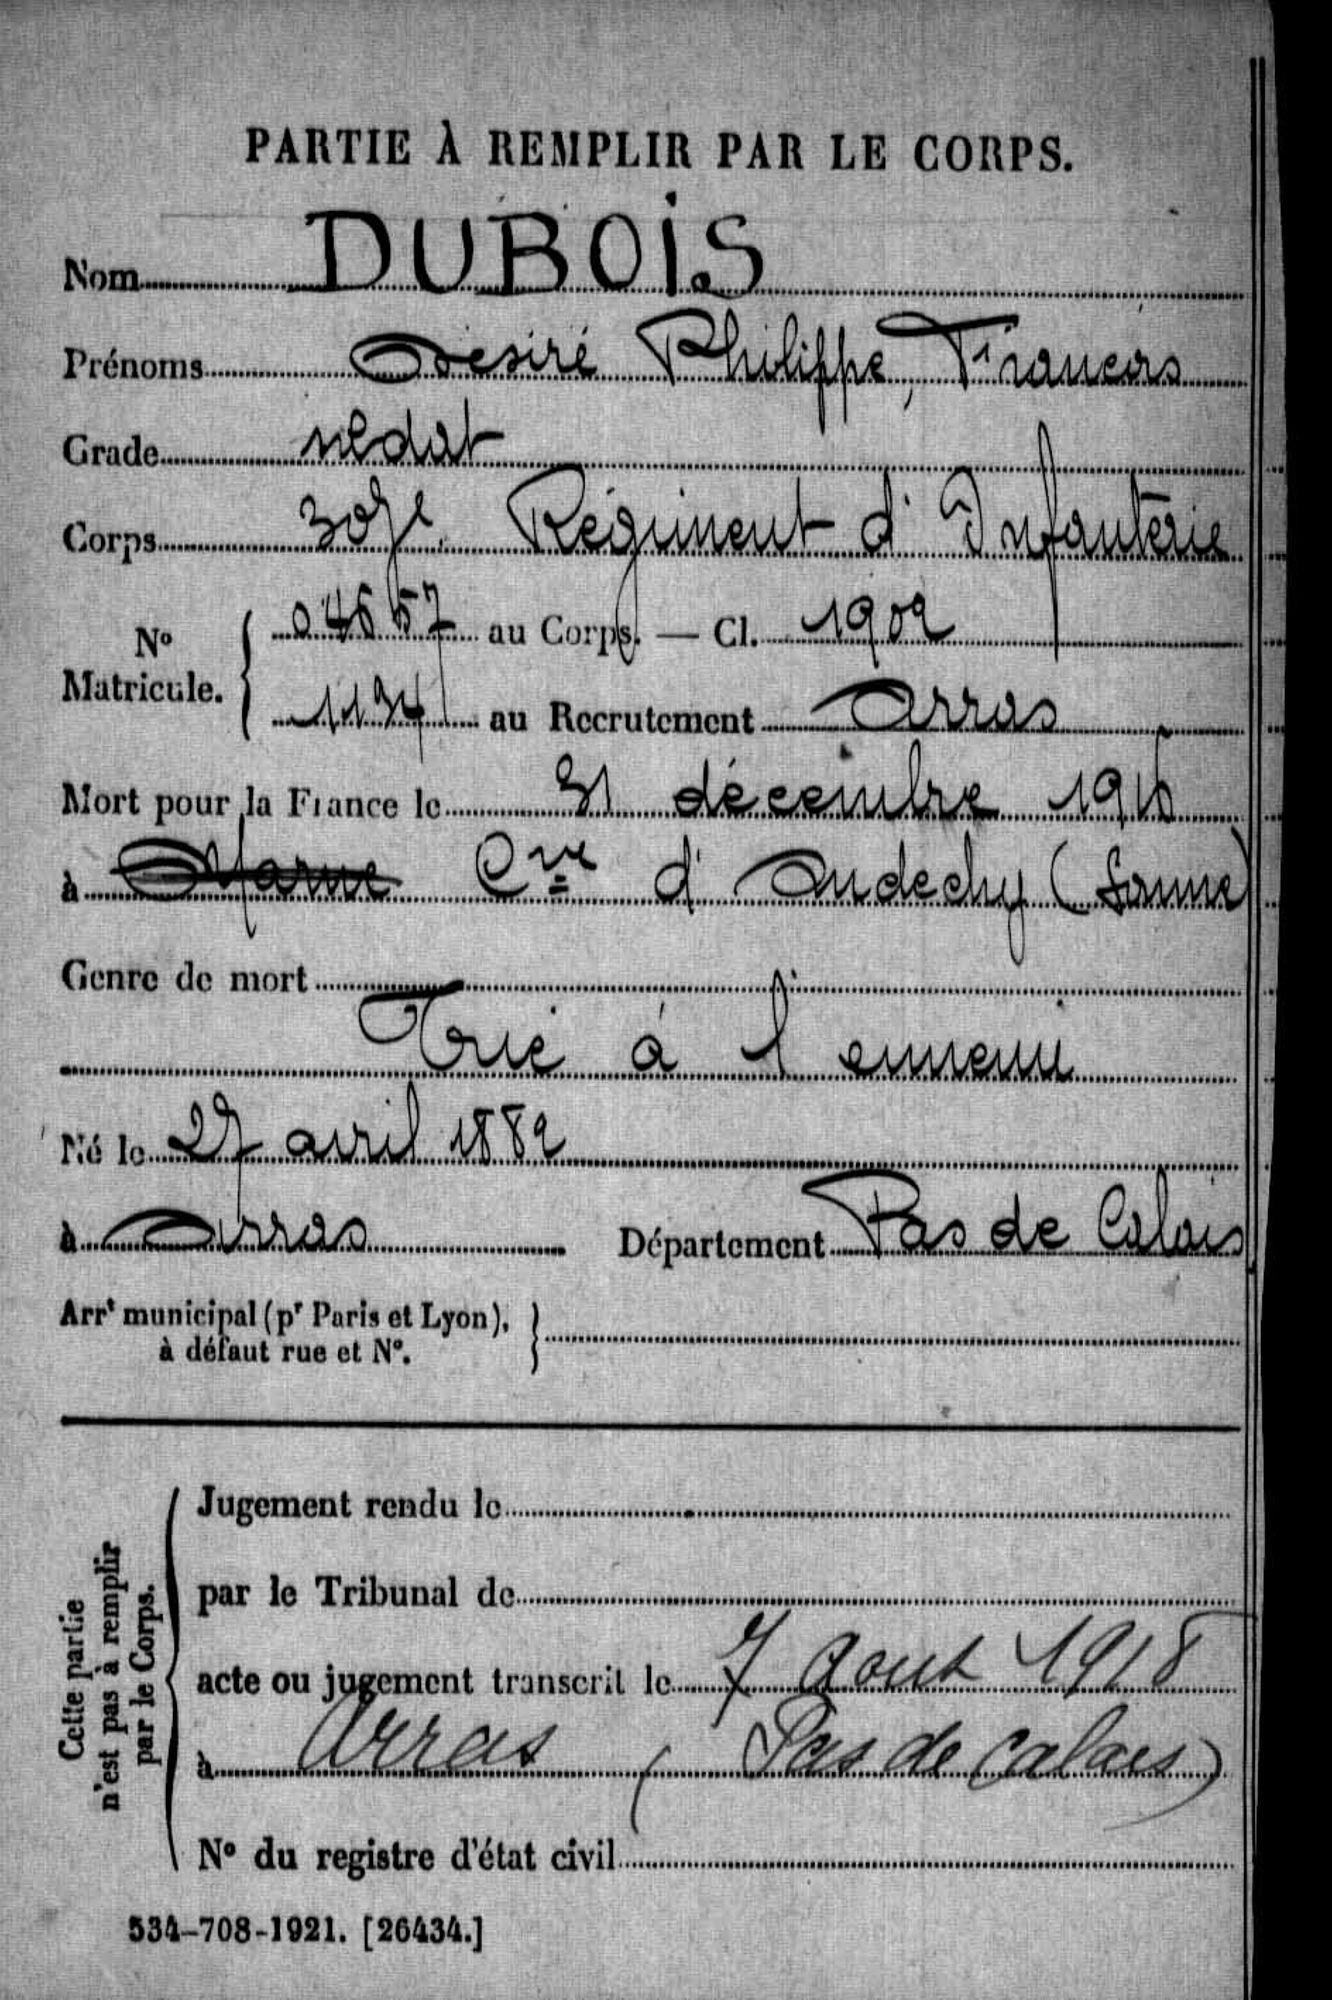 PARTIE À REMPLIR PAR LE CORPS.
Nom DUBOIS
Prénoms Désiré Philippe, François
Grade soldat
Corps Régiment d'Infanterie
Nº Matricule. { 04657 au Corps. — Cl. 1902
1134 au Recrutement Arras
Mort pour la France le 31 décembre
à Marne Cne d'Andechy (Somme)
Genre de mort
Tué à l'ennemi
Né le 27 avril 1882
à Arras Département Pas de Calais
Arrt municipal (pr Paris et Lyon),
à défaut rue et Nº.
Cette partie
n'est pas à remplir
par le Corps.
Jugement rendu le
par le Tribunal de
acte ou jugement transcrit le 7 Aout 1918
à Arras (Pas de Calais)
Nº du registre d'état civil
534-708-1921. [26434.]